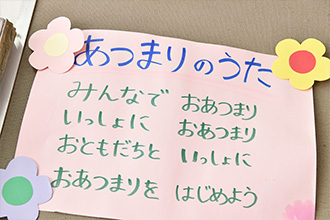 あつまりのうた
みんなで おあつまり
いっしょに おあつまり
おともだちと いっしょに
おあつまりを はじめよう